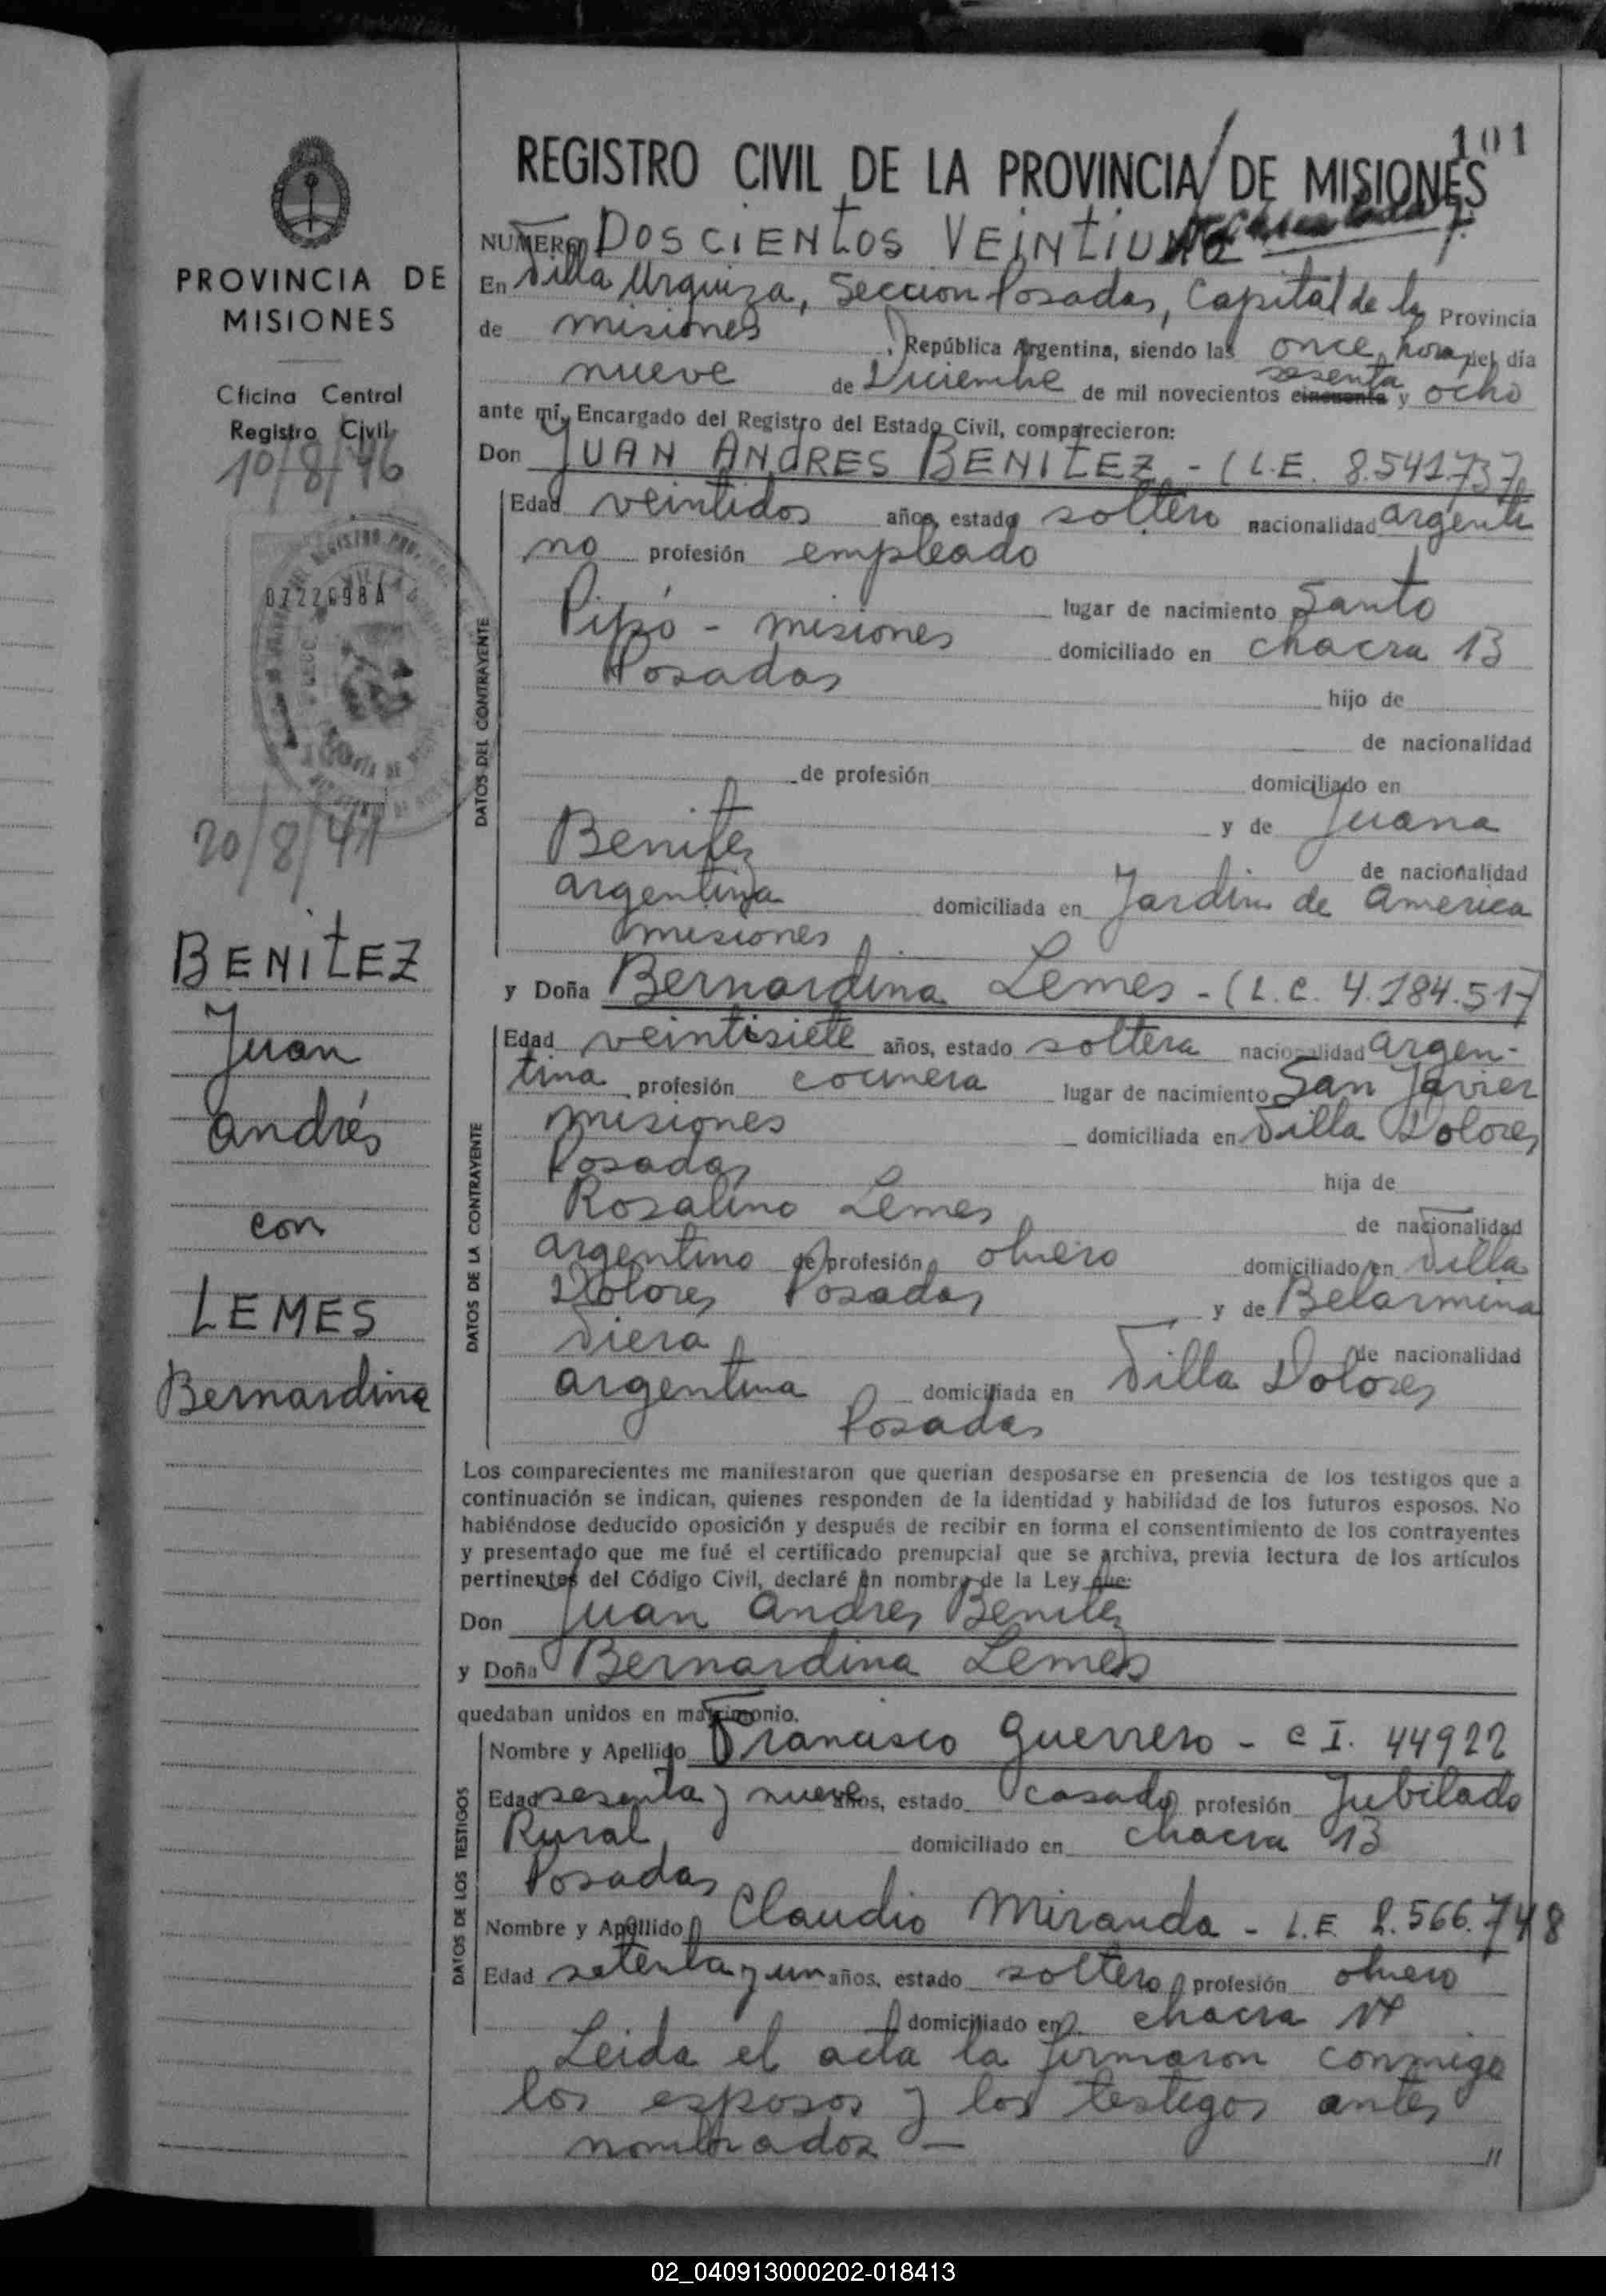 101
REGISTRO CIVIL DE LA PROVINCIA DE MISIONES
NUMERO DOSCIENTOS VEINTIUNO
En Villa Urquiza, Seccion Posadas, Capital de la Provincia
de misiones, República Argentina, siendo las once horas del día
nueve de Diciembre de mil novecientos cincuenta sesenta y ocho
ante mí, Encargado del Registro del Estado Civil, comparecieron:
Don JUAN ANDRES BENITEZ - (L.E. 8.541.737)
Edad veintidos años, estado soltero nacionalidad argenti
no profesión empleado
lugar de nacimiento Santo
Pipó - misiones domiciliado en chacra 13
Posadas
hijo de
de nacionalidad
de profesión domiciliado en
y de Juana
Benitez
de nacionalidad
argentina domiciliada en Jardin de America
misiones
y Doña Bernardina Lemes - (L.C. 4.184.517)
Edad veintisiete años, estado soltera nacionalidad argen-
tina profesión cocinera lugar de nacimiento San Javier
misiones domiciliada en Villa Dolores
Posadas
hija de
Rosalino Lemes
de nacionalidad
argentino de profesión obrero domiciliado en Villa
Dolores Posadas y de Belarmina
Viera
de nacionalidad
argentina domiciliada en Villa Dolores
Posadas
DATOS DEL CONTRAYENTE
DATOS DE LA CONTRAYENTE
Los comparecientes me manifestaron que querían desposarse en presencia de los testigos que a
continuación se indican, quienes responden de la identidad y habilidad de los futuros esposos. No
habiéndose deducido oposición y después de recibir en forma el consentimiento de los contrayentes
y presentado que me fué el certificado prenupcial que se archiva, previa lectura de los artículos
pertinentes del Código Civil, declaré en nombre de la Ley que:
Don Juan Andres Benitez
y Doña Bernardina Lemes
quedaban unidos en matrimonio.
Nombre y Apellido Francisco Guerrero - C I. 44922
Edad sesenta y nueve años, estado casado profesión Jubilado
Rural domiciliado en chacra 13
Posadas
Nombre y Apellido Claudio Miranda - L.E 2.566.748
Edad setenta y un años, estado soltero profesión obrero
domiciliado en chacra 14
DATOS DE LOS TESTIGOS
Leida el acta la firmaron conmigo
los esposos y los testigos antes
nombrados —
PROVINCIA DE
MISIONES
Oficina Central
Registro Civil
10/8/76
0722698A
20/8/
BENITEZ
Juan
Andrés
con
LEMES
Bernardina
02_040913000202-018413